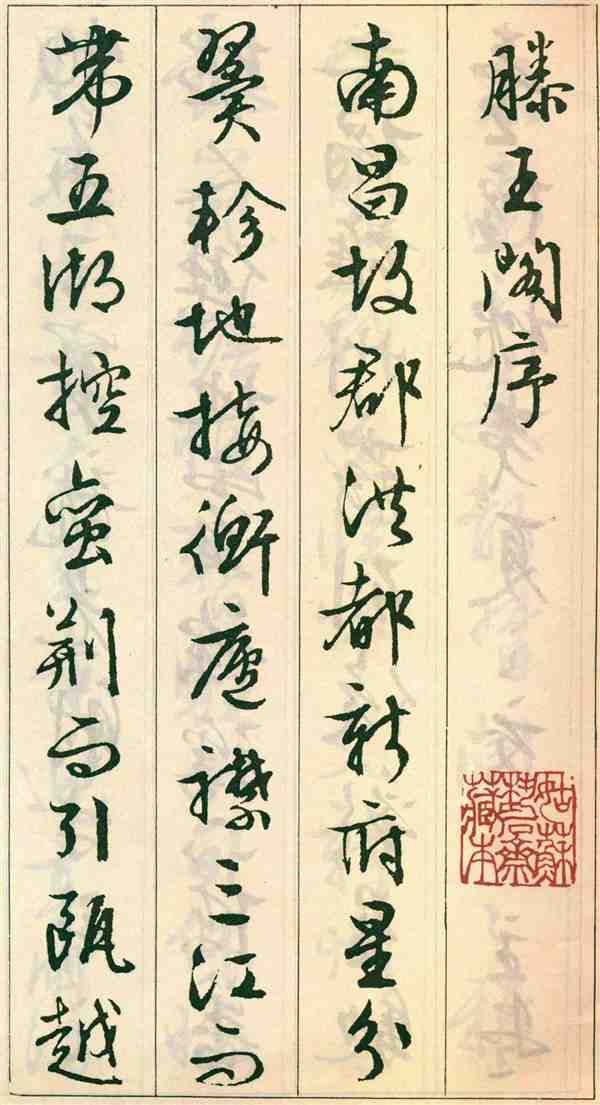 滕王閣序
南昌故郡洪都新府星分
翼軫地接衡廬襟三江而
帶五湖控蠻荊而引甌越
姑蘇
藏本